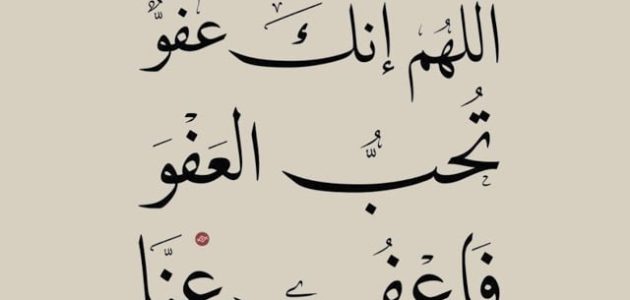 اللهُم إنك عفوٌّ
تُحبُّ العَفْوَ
فَاعْفُ عنَّا